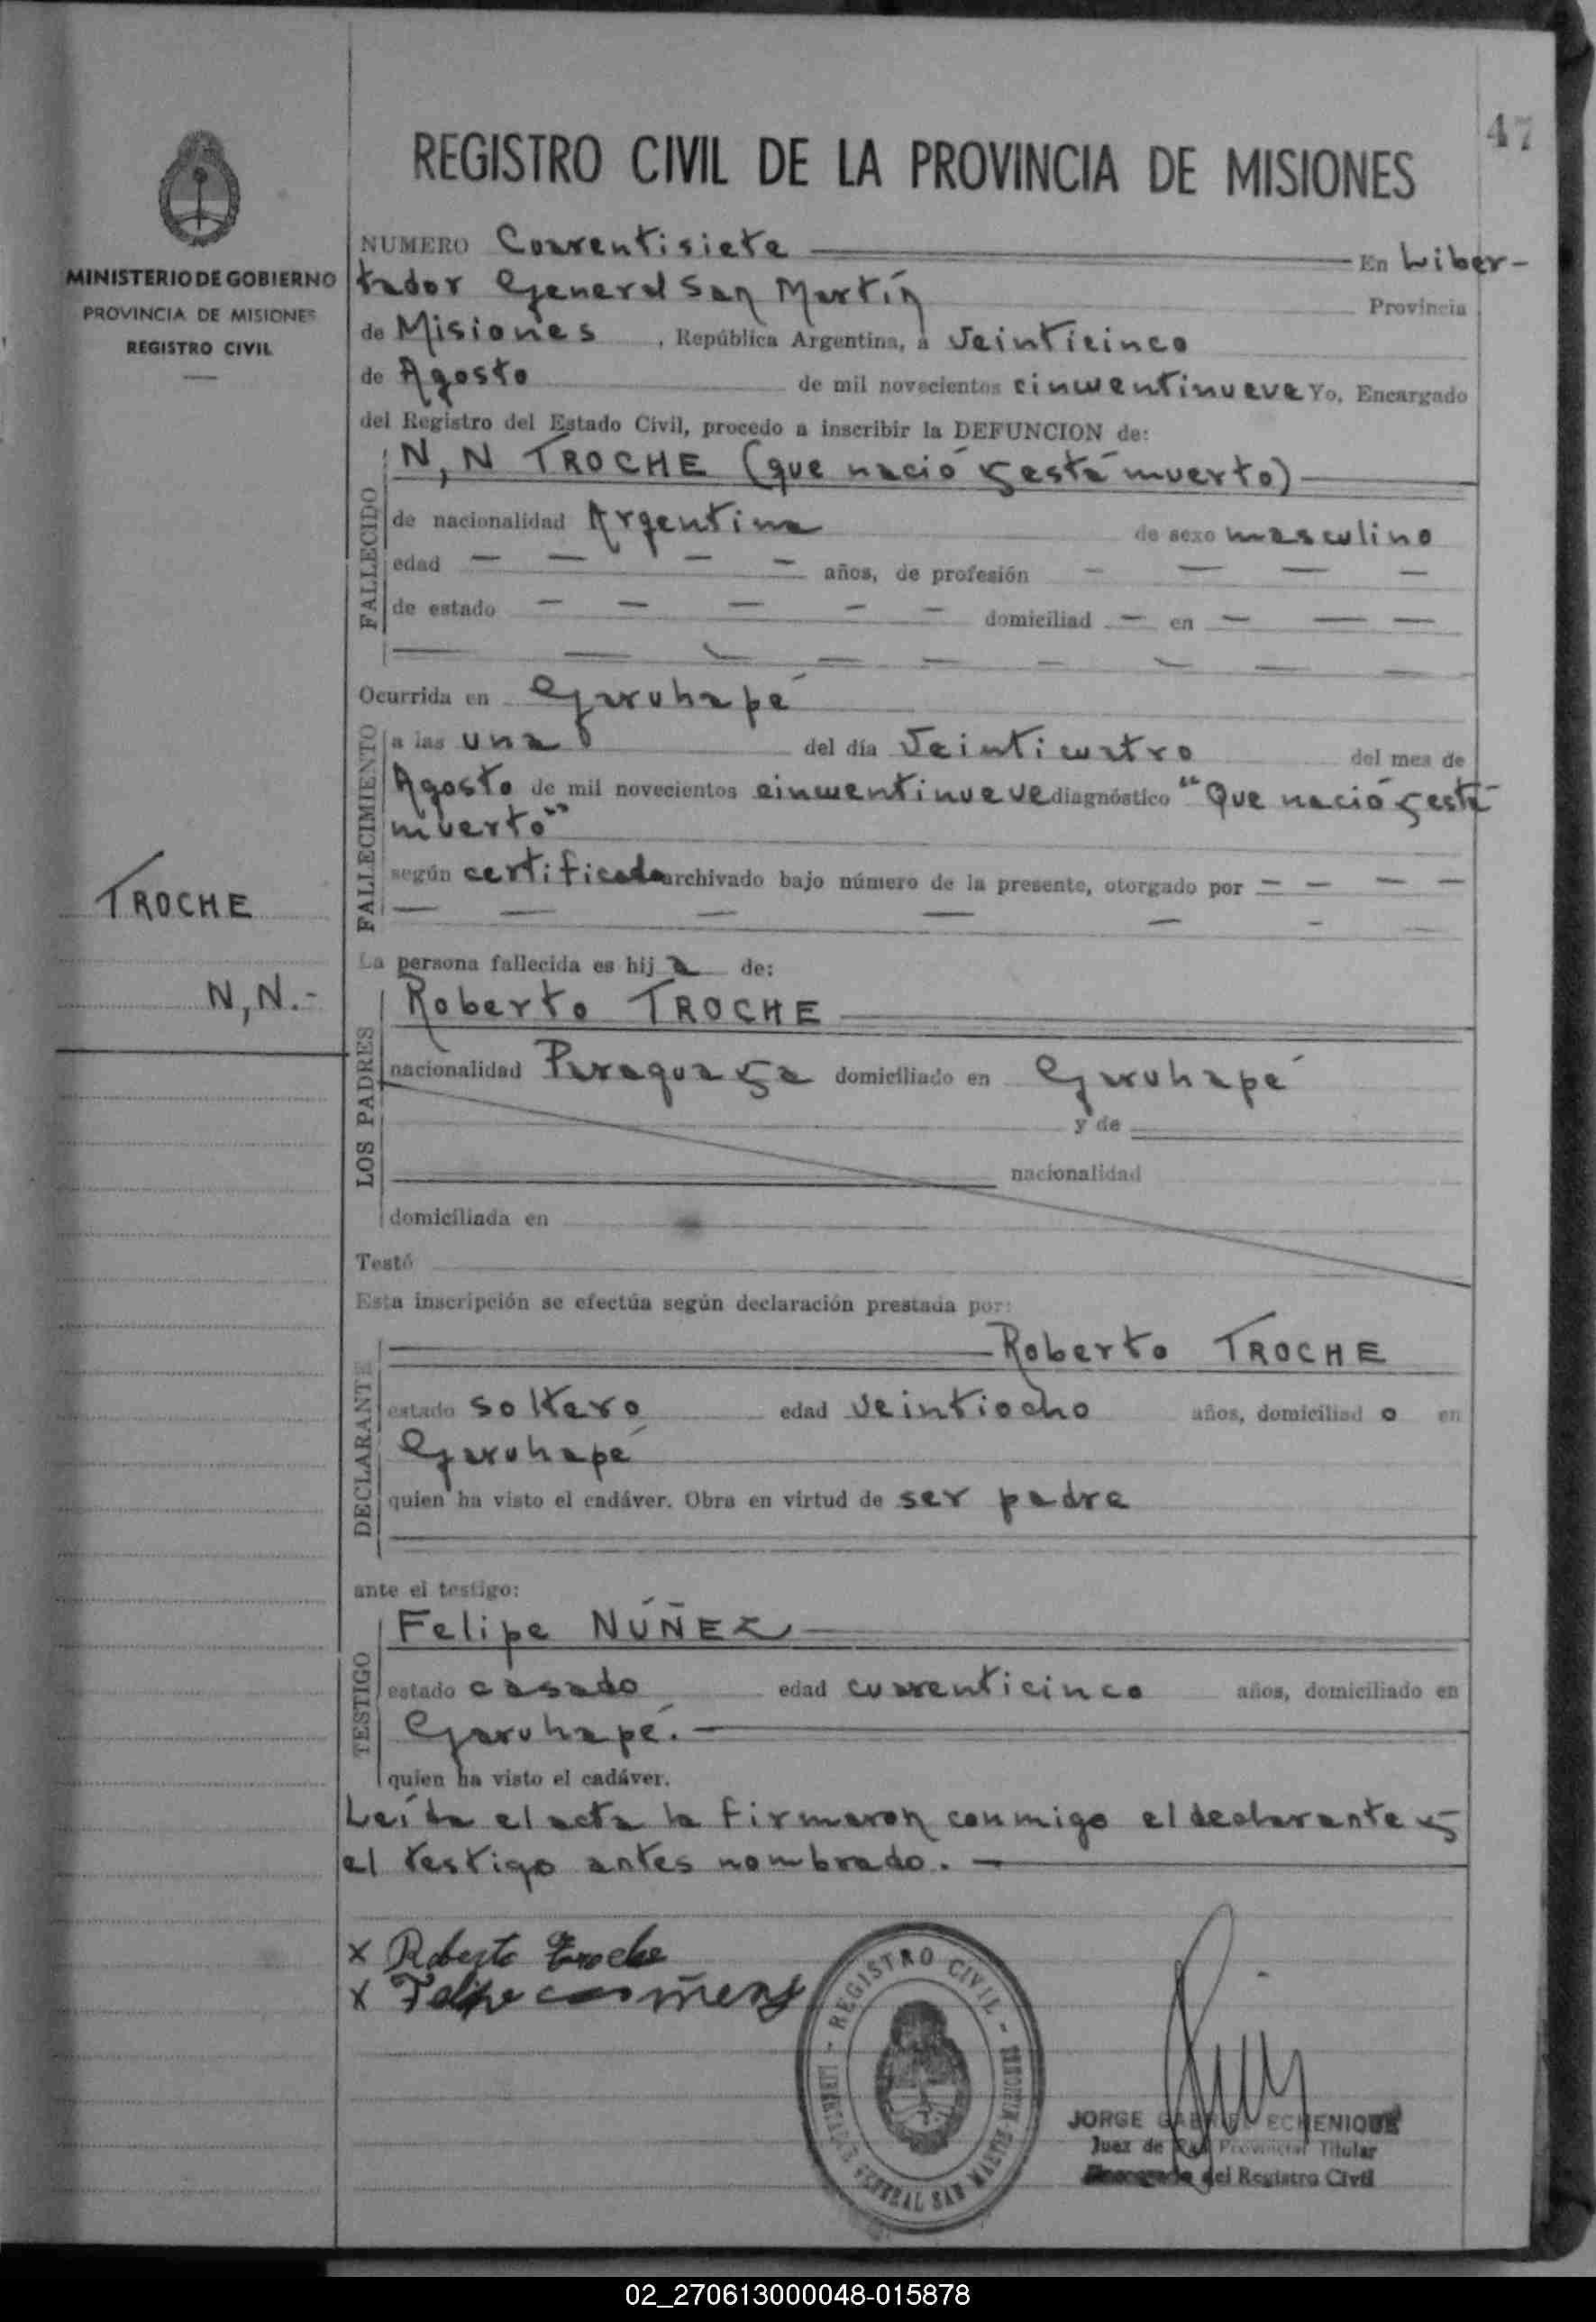 47
REGISTRO CIVIL DE LA PROVINCIA DE MISIONES
MINISTERIO DE GOBIERNO
PROVINCIA DE MISIONES
REGISTRO CIVIL
NUMERO Cuarentisiete En Liber-
tador General San Martín Provincia
de Misiones, República Argentina, a veinticinco
de Agosto de mil novecientos cincuentinueve Yo, Encargado
del Registro del Estado Civil, procedo a inscribir la DEFUNCION de:
FALLECIDO
N, N TROCHE (que nació y está muerto)
de nacionalidad Argentina de sexo masculino
edad — — — — años, de profesión — — — —
de estado — — — — — domiciliad — en — — —
— — — — — — — — —
Ocurrida en Garuhapé
FALLECIMIENTO
a las una del día veinticuatro del mes de
Agosto de mil novecientos cincuentinueve diagnóstico "Que nació y está
muerto"
según certificado archivado bajo número de la presente, otorgado por — — — —
— — — — — — —
TROCHE
N, N.-
La persona fallecida es hij a de:
LOS PADRES
Roberto TROCHE
nacionalidad Paraguaya domiciliado en Garuhapé
y de
nacionalidad
domiciliada en
Testó
Esta inscripción se efectúa según declaración prestada por:
DECLARANTE
Roberto TROCHE
estado soltero edad veintiocho años, domiciliad o en
Garuhapé
quien ha visto el cadáver. Obra en virtud de ser padre
ante el testigo:
TESTIGO
Felipe NÚÑEZ
estado casado edad cuarenticinco años, domiciliado en
Garuhapé.
quien ha visto el cadáver.
Leída el acta la firmaron conmigo el declarante y
el testigo antes nombrado.
x Roberto Troche
x Felipe
REGISTRO CIVIL - PROVINCIA MISIONES
LIBERTADOR GENERAL SAN MARTIN
JORGE GABRIEL ECHENIQUE
Juez de Paz Provincial Titular
Encargado del Registro Civil
02_270613000048-015878